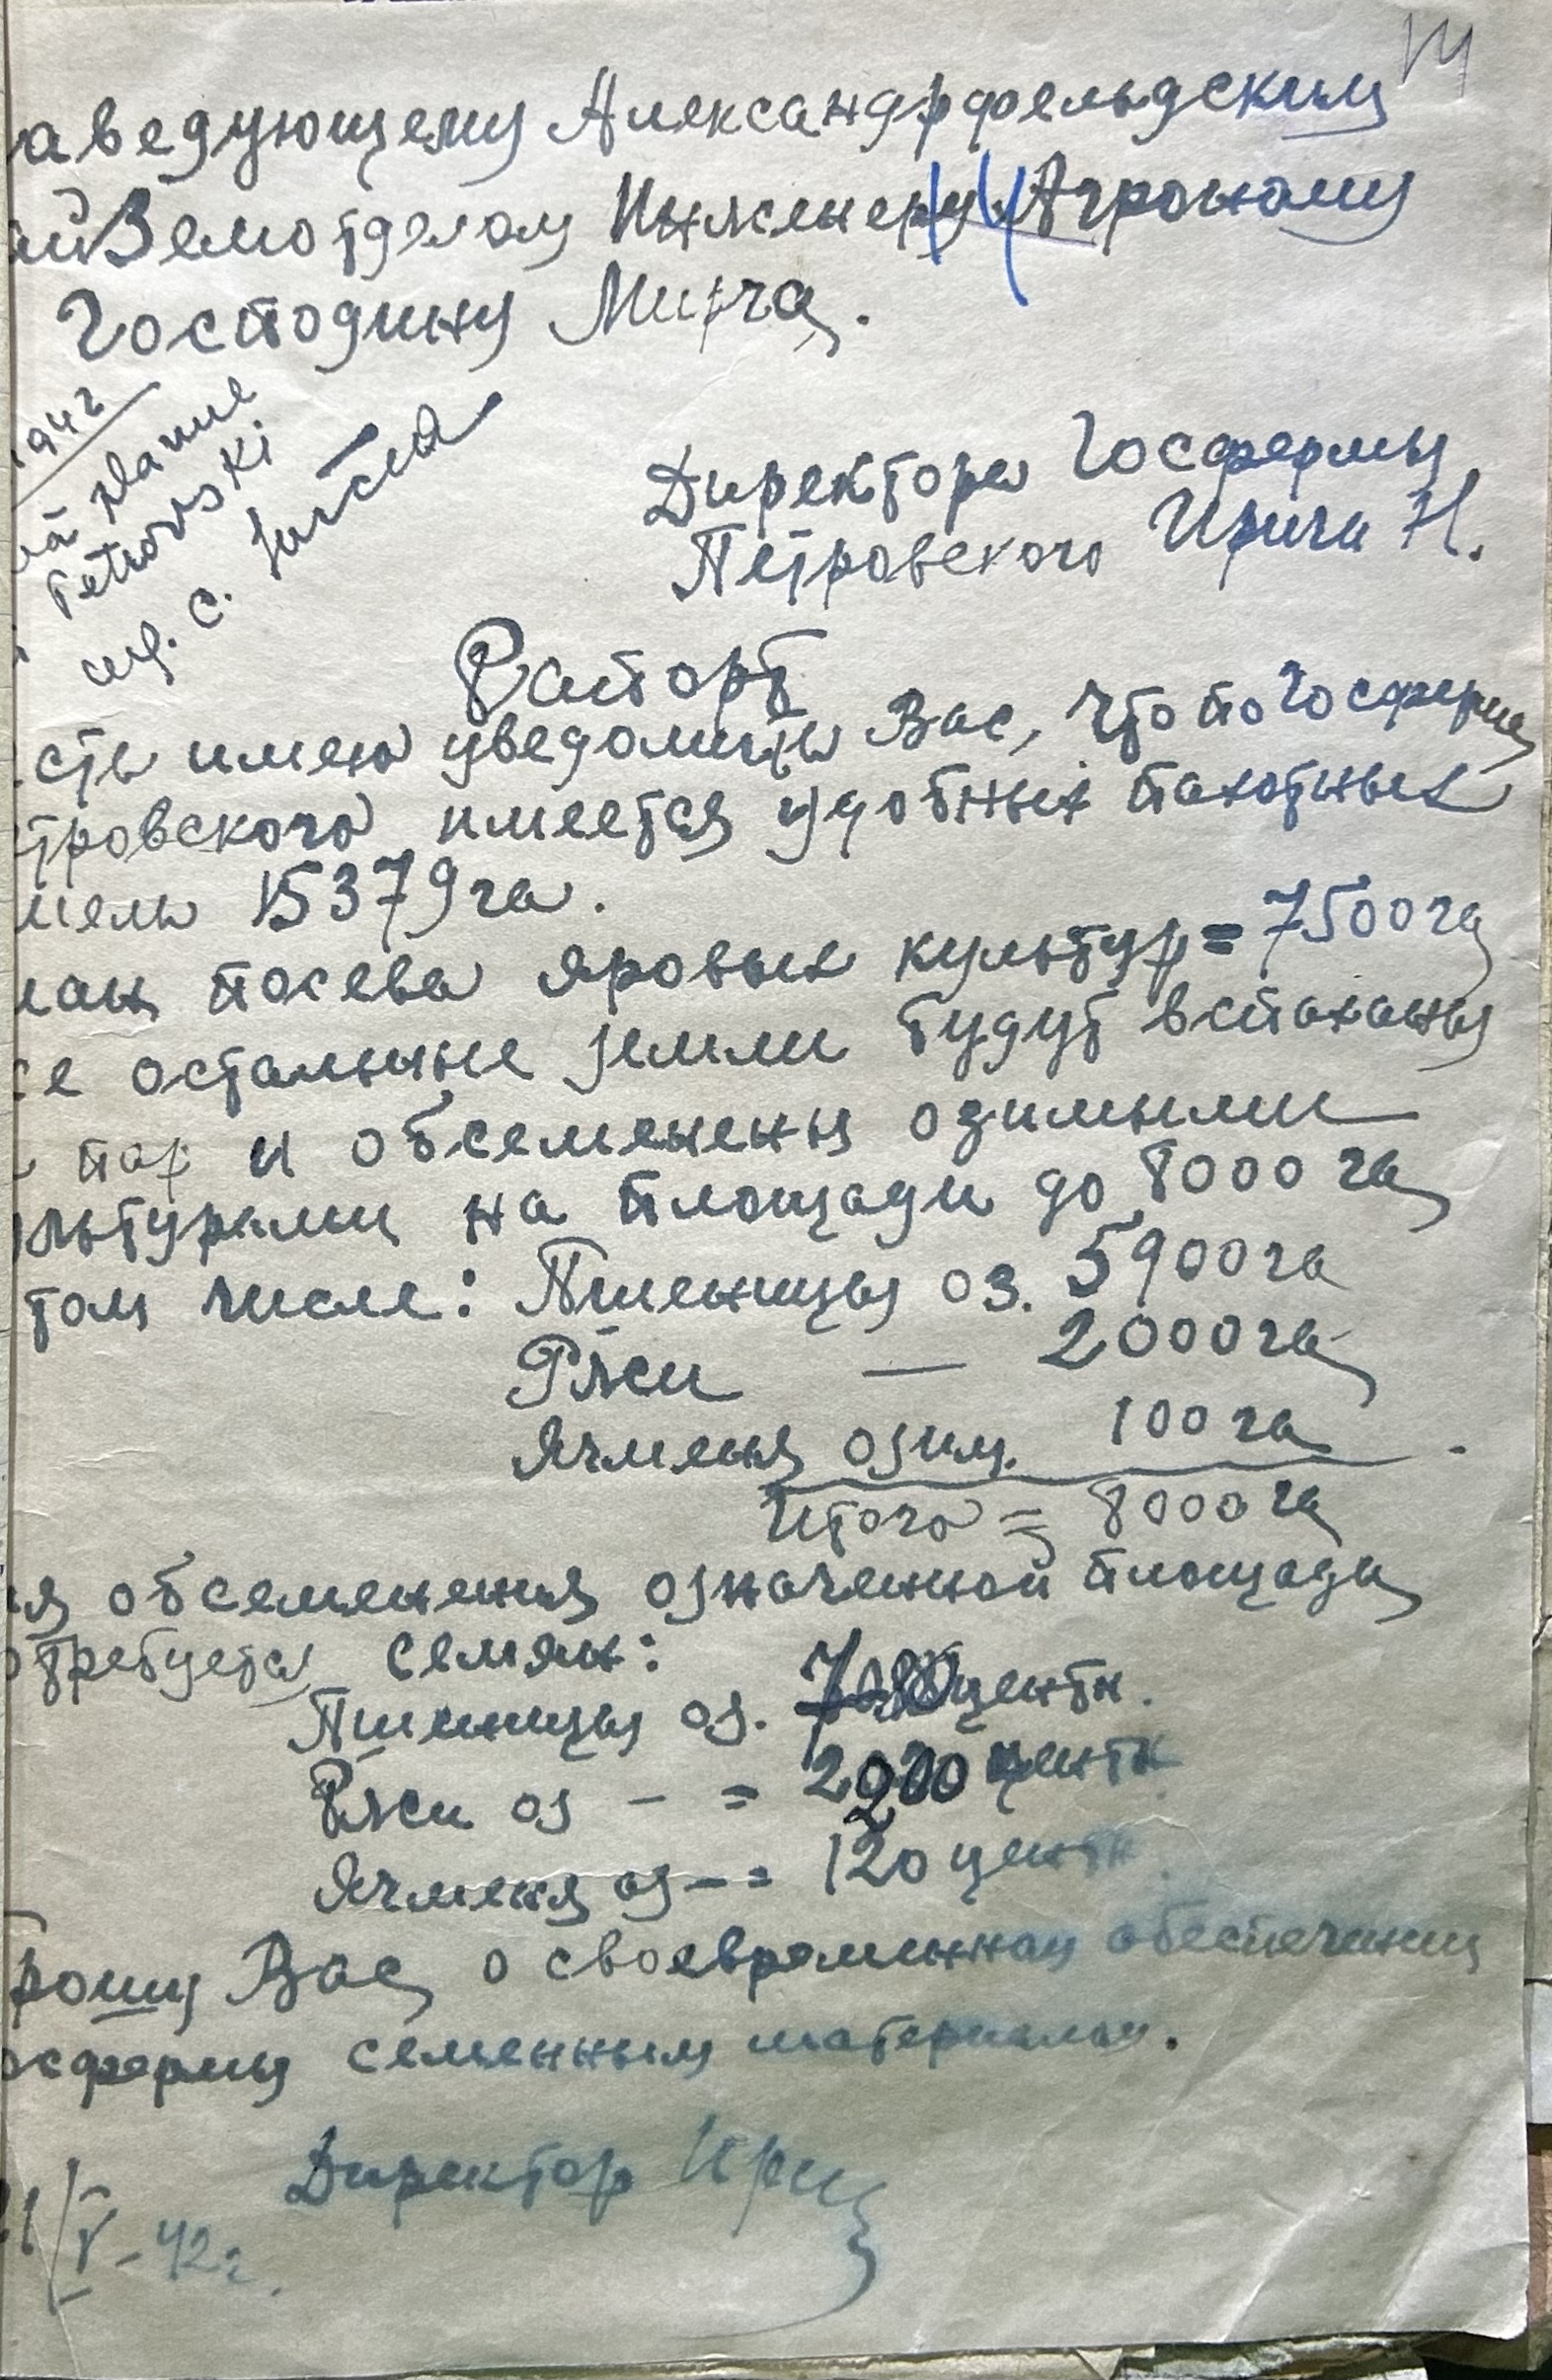 14
аведующему Александрфельдским
айЗемотделом Инженеру Агроному
Господину Мирча.
1942
Petrovski
Директора Госфермы
Петровского Ирича Н.
Рапорт
сть имею уведомить Вас, что по Госферме
тровского имеется удобных пахотных
мель 15379 га.
лан посева яровых культур = 7500 га
се остальные земли будут вспаханы
пар и обсеменены озимыми
льтурами на площади до 8000 га
том числе: Пшеницы оз. 5900 га
Ржи — 2000 га
Ячменя озим. 100 га
Итого = 8000 га
ля обсеменения означенной площади
отребуется семян:
Пшеницы оз. центн.
Ржи оз - = центн
Ячменя оз - = 120 центн.
Прошу Вас о своевременном обеспечении
осфермы семенным материалом.
Директор Ирич
21/V-42г.